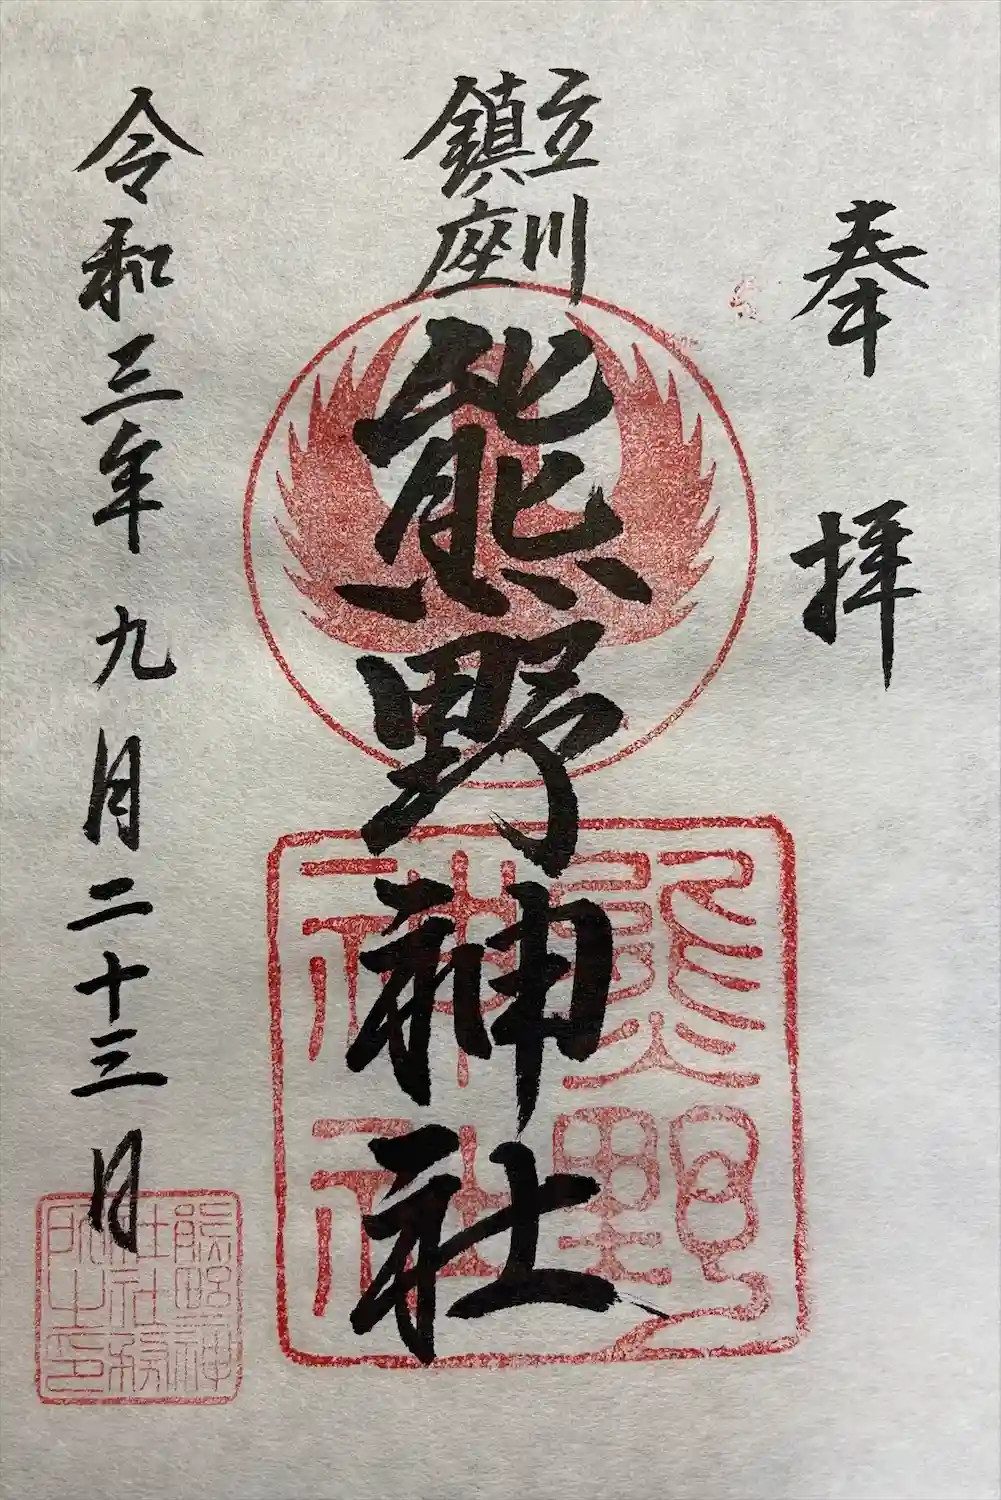 奉拝
立川
鎮座
熊野神社
令和三年九月二十三日
熊野
神社
熊野神
社社務
所之印